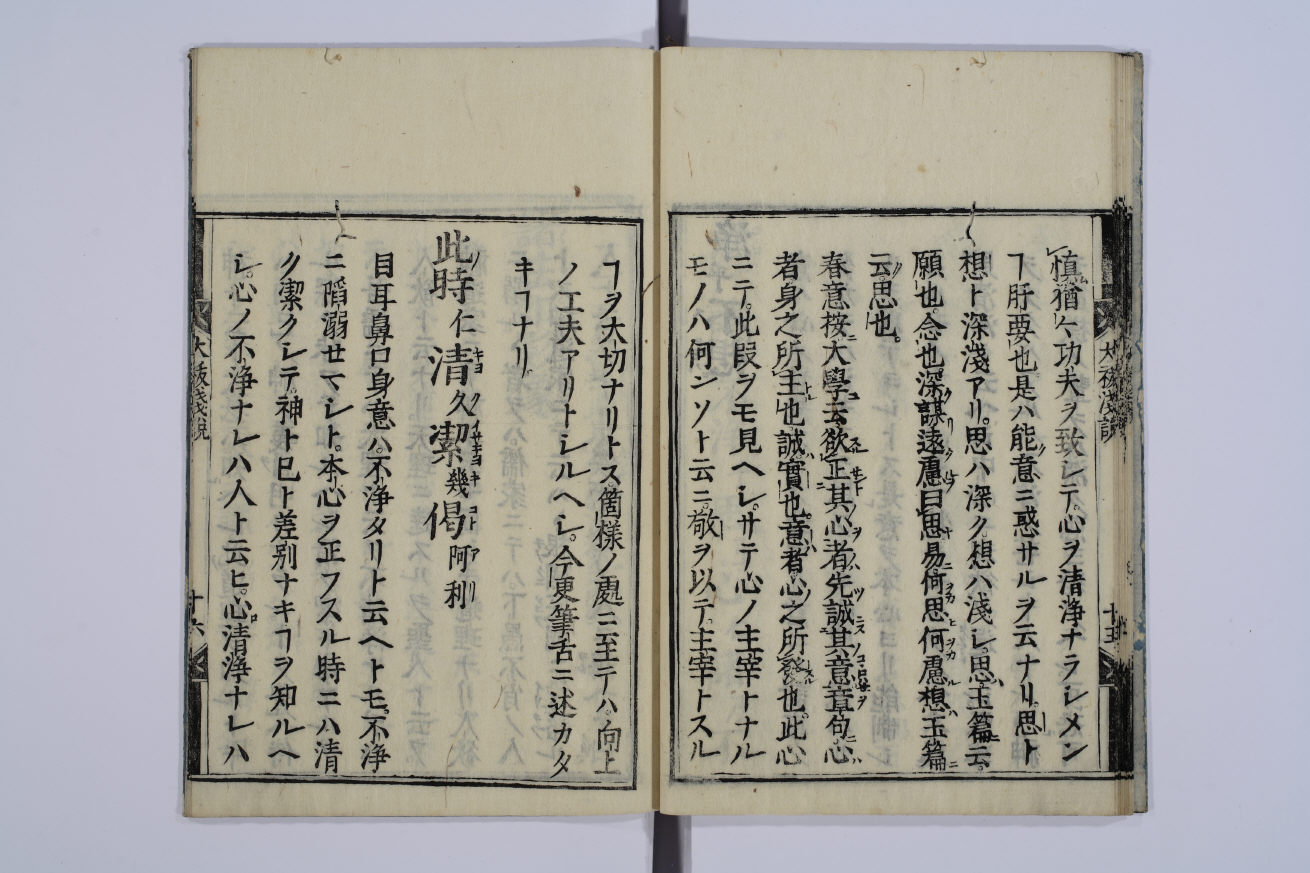 慎猶ヲ功夫ヲ致シテ心ヲ清浄ナラシメン
ヿ肝要也是ハ能意ニ惑サルヲ云ナリ思ト
想ト深淺アリ思ハ深ク想ハ淺シ思玉篇云
願也念也深謀遠慮曰思易何思何慮想玉篇
云思也
春意按大學云欲正其心者先誠其意章句心
者身之所主也誠實也意者心之所發也此心
ニテ此段ヲモ見ヘシサテ心ノ主宰トナル
モノハ何ンソト云ニ敬ヲ以テ主宰トスル
大祓淺說
十五
ヿヲ大切ナリトス箇樣ノ處ニ至テハ向上
ノ工夫アリトシルヘシ今更筆舌ニ述カタ
キヿナリ
此時仁清久潔幾偈阿利
目耳鼻口身意ハ不浄タリト云ヘトモ不浄
ニ陷溺セマシト本心ヲ正フスル時ニハ清
ク潔クシテ神ト已ト差别ナキヿヲ知ルヘ
シ心ノ不浄ナレハ人ト云ヒ心清浄ナレハ
大祓淺說
十六